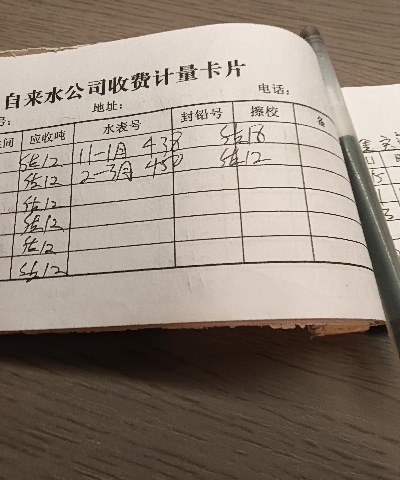 自来水公司收费计量卡片
号: 地址: 电话:
间 应收吨 水表号 封铅号 擦校 备
估12 11-1月 438 估18
估12 2-3月 450 估12
估12
估12
估12
估12